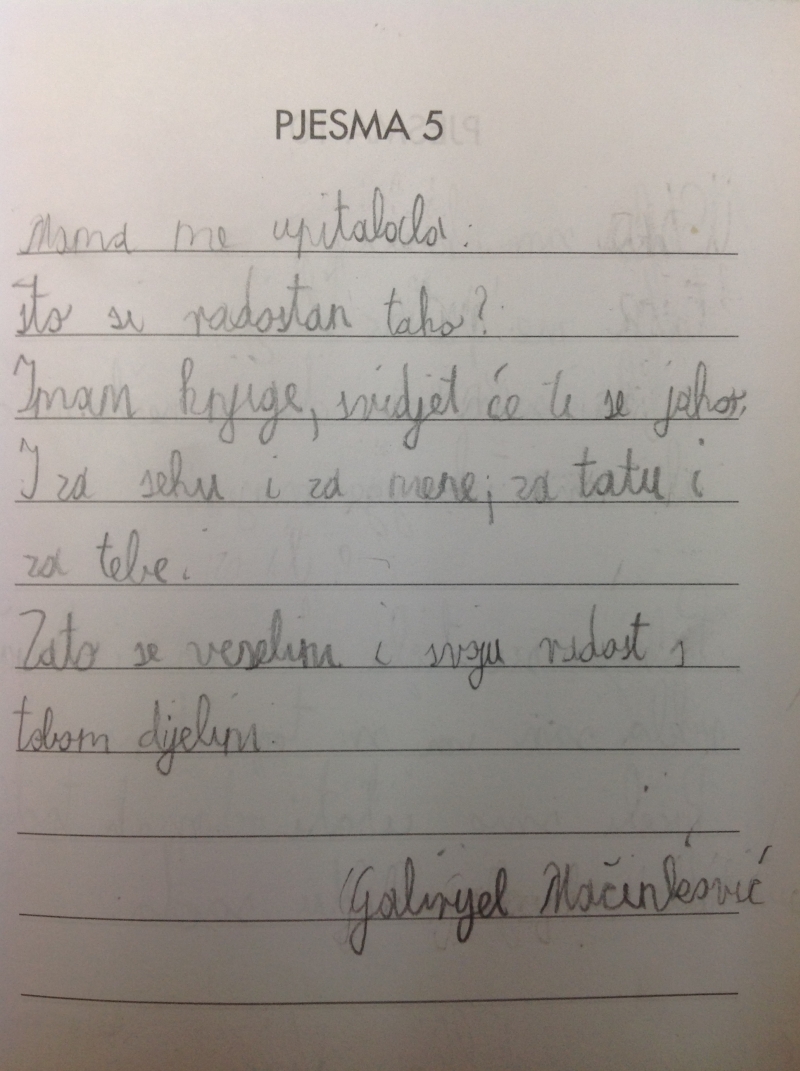 PJESMA 5
Mama me upitalada:
što si radostan tako?
Imam knjige, svidjet će ti se jako,
I za seku i za mene; za tatu i
za tebe.
Zato se veselim i svoju radost s
tobom dijelim.